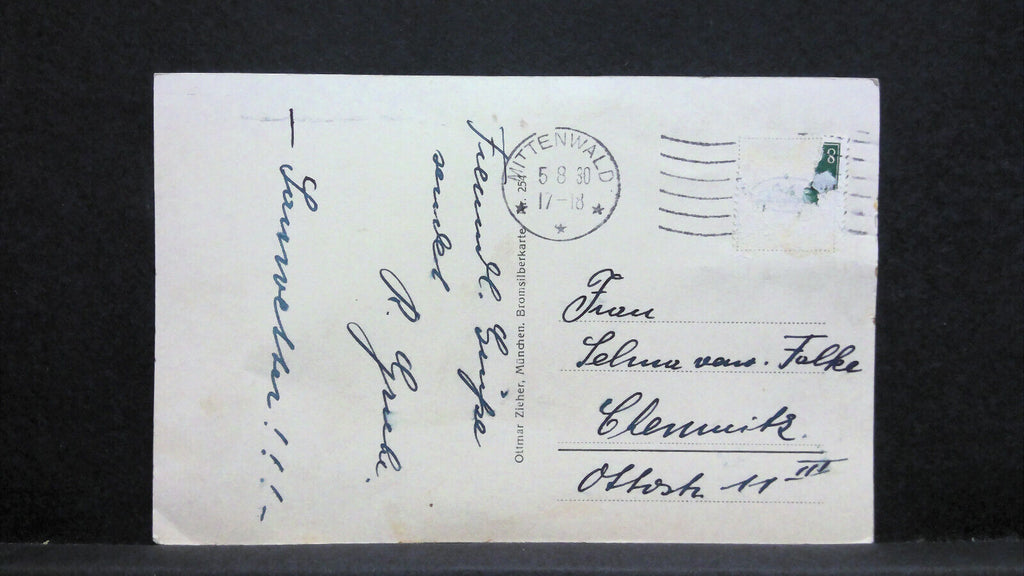 Freundl. Grüße
sendet
R.
— Sauwetter!!! –
Ottmar Zieher, München. Bromsilberkarte
254
MITTENWALD
5 8 30
17-18
8
Frau
Selma verw. Falke
Chemnitz.
Ottostr. 11 III